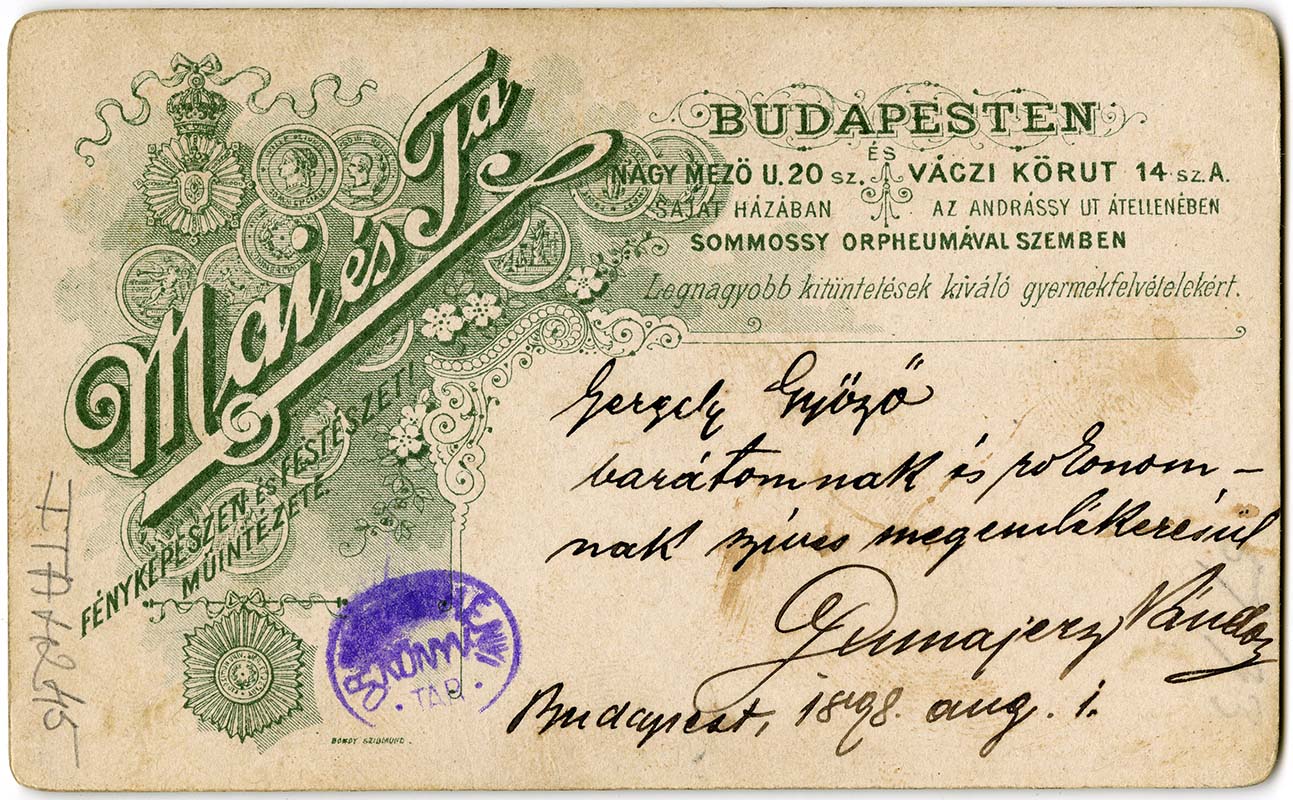 Mai és Ta
FÉNYKÉPÉSZEN. ÉS FESTÉSZETI
MŰINTÉZETE.
BUDAPESTEN
NAGY MEZÖ U. 20 SZ. ÉS VÁCZI KÖRUT 14 SZ. A.
SAJÁT HÁZÁBAN AZ ANDRÁSSY UT ÁTELLENÉBEN
SOMMOSSY ORPHEUMÁVAL SZEMBEN
Legnagyobb kitüntetések kiváló gyermekfelvételekért.
Gergely Győző
barátomnak és rokonom-
nak szives megemlékezésül
Nándor
Budapest, 1898. aug. 1.
TÁR.
BONDY SZIGIMUND.